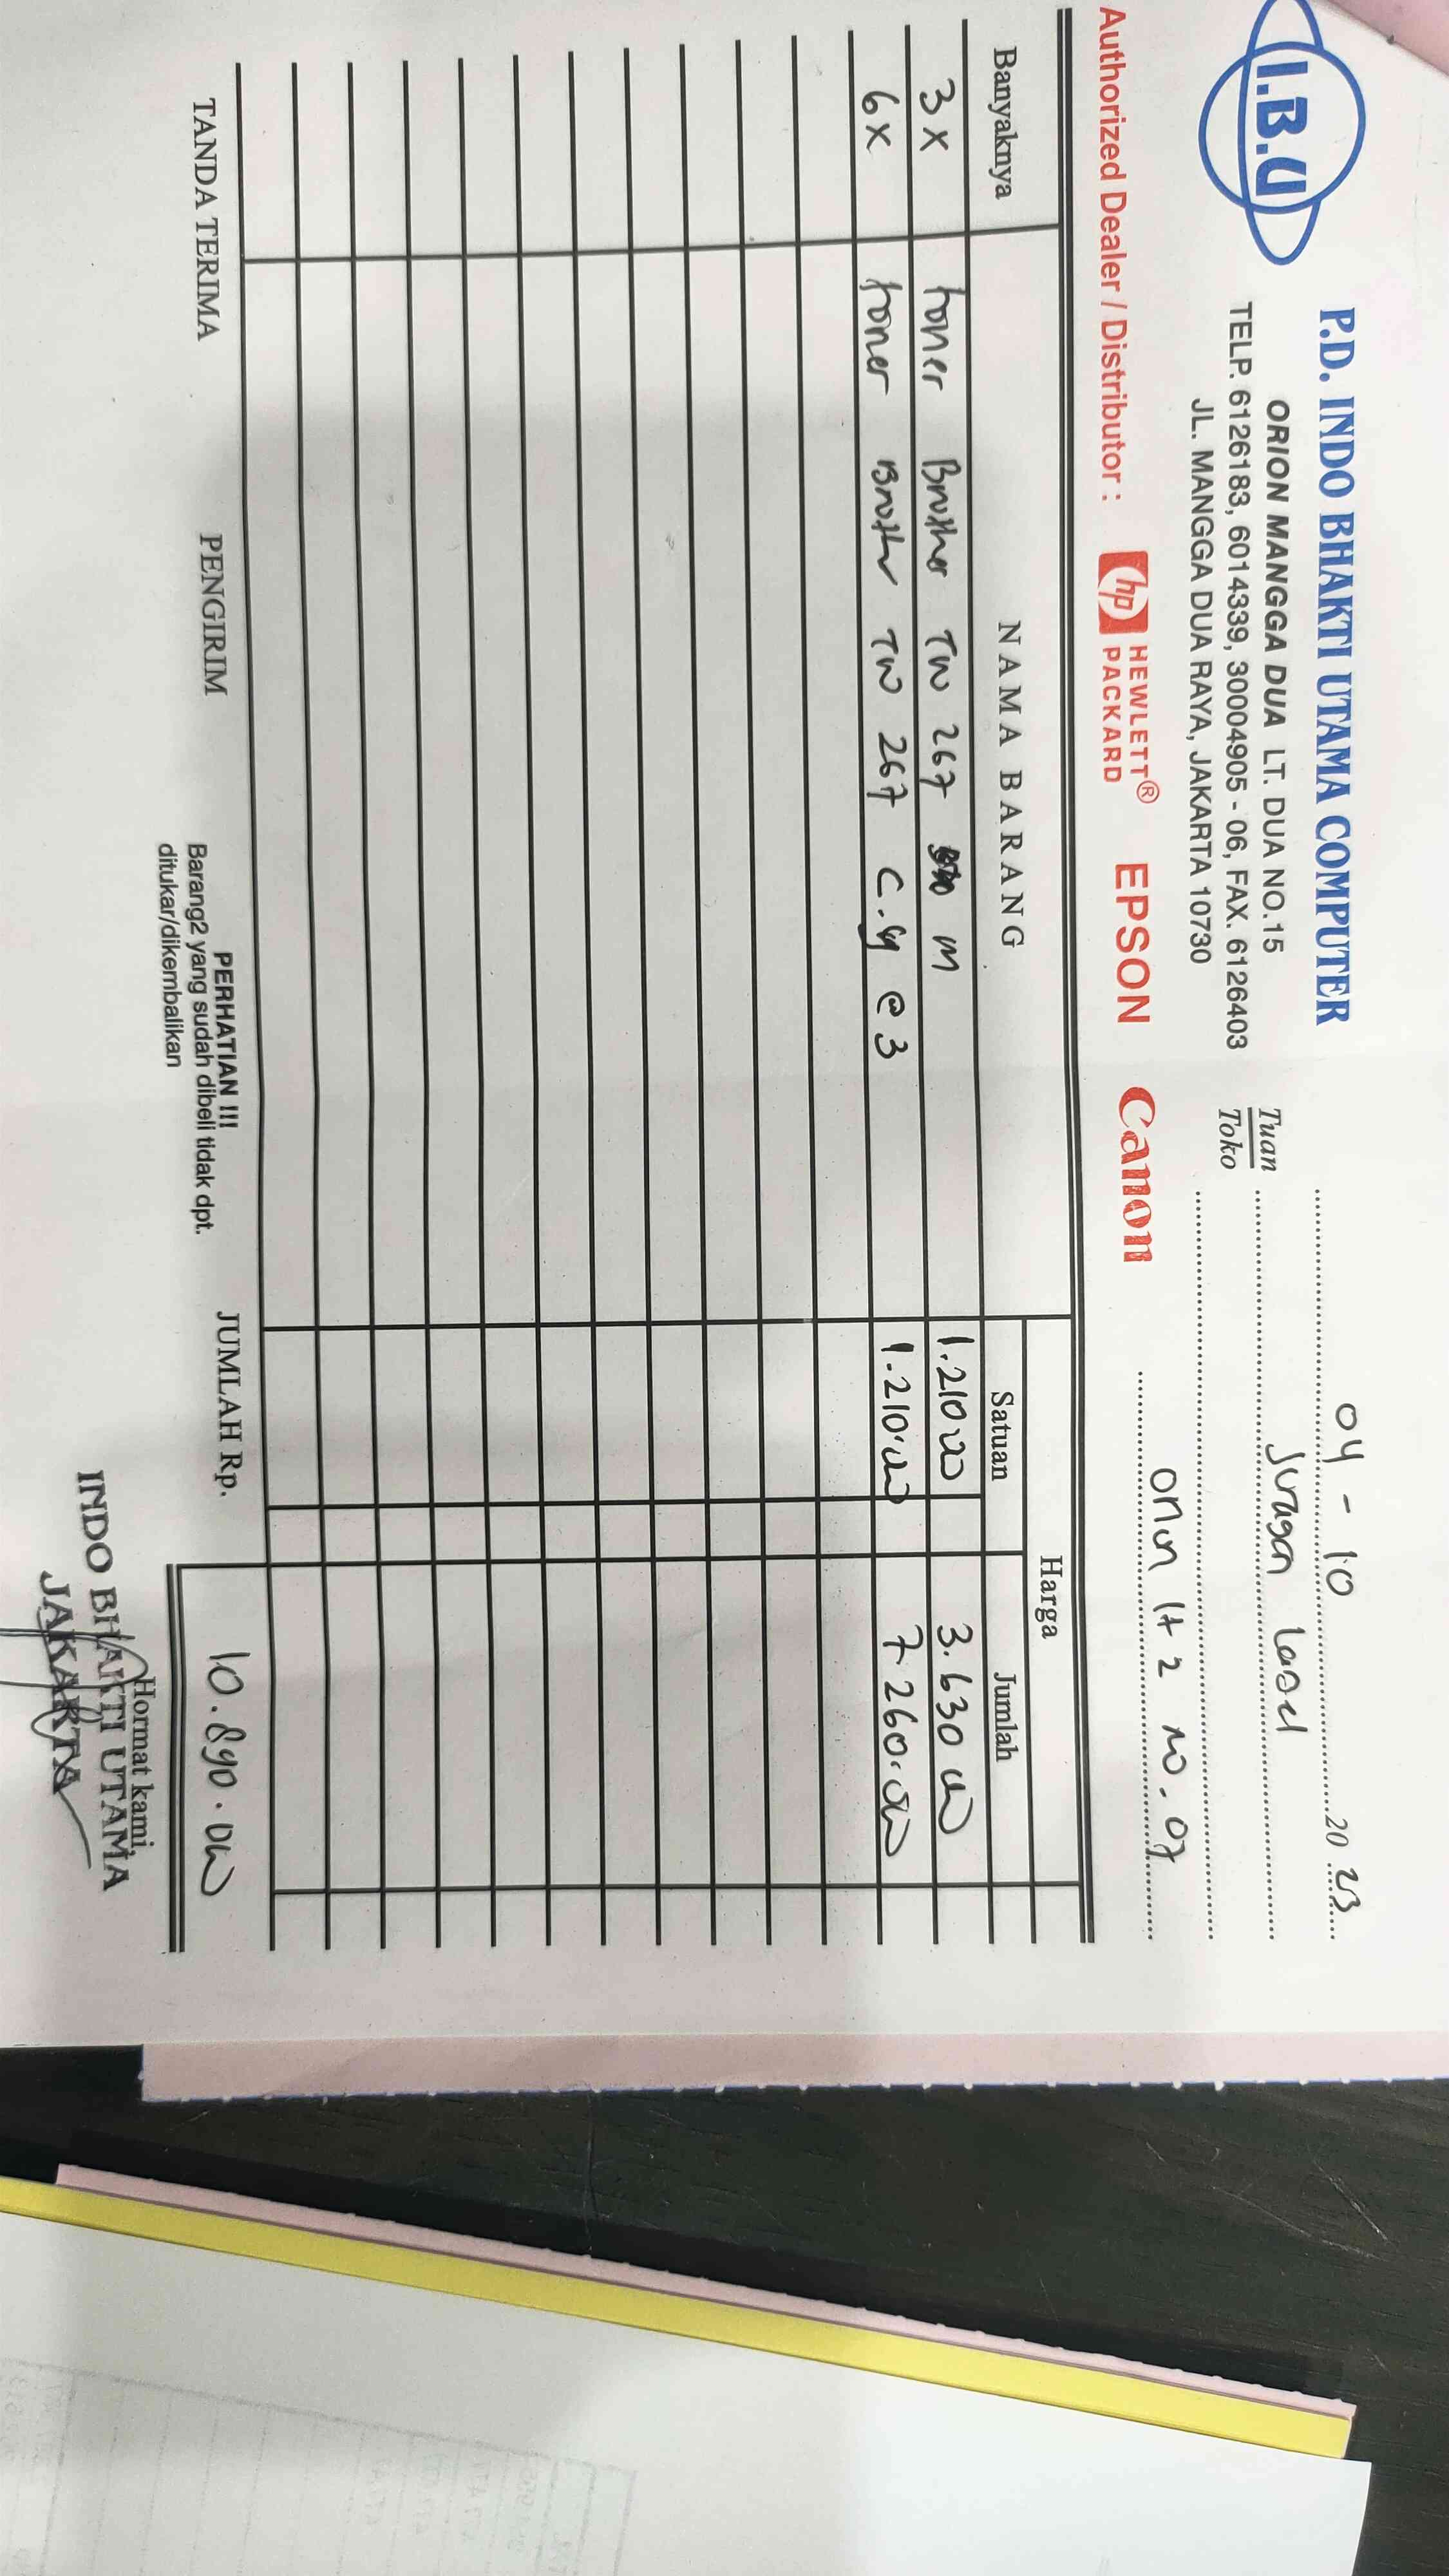 I.B.U
P.D. INDO BHAKTI UTAMA COMPUTER
ORION MANGGA DUA LT. DUA NO.15
TELP. 6126183, 6014339, 30004905 - 06, FAX. 6126403
JL. MANGGA DUA RAYA, JAKARTA 10730
04 - 10 20 23
Tuan
Toko
Juragan Lased
Orion lt 2 no. 07
Authorized Dealer / Distributor : hp HEWLETT® PACKARD EPSON Canon
Banyaknya NAMA BARANG Harga
Satuan Jumlah
3 x toner Brother TN 267 M 1.210.00 3.630.00
6 x toner Brother TN 267 C.Y @ 3 1.210.00 7.260.00
TANDA TERIMA PENGIRIM JUMLAH Rp. 10.890.00
PERHATIAN !!!
Barang2 yang sudah dibeli tidak dpt.
ditukar/dikembalikan
Hormat kami,
INDO BHAKTI UTAMA
JAKARTA